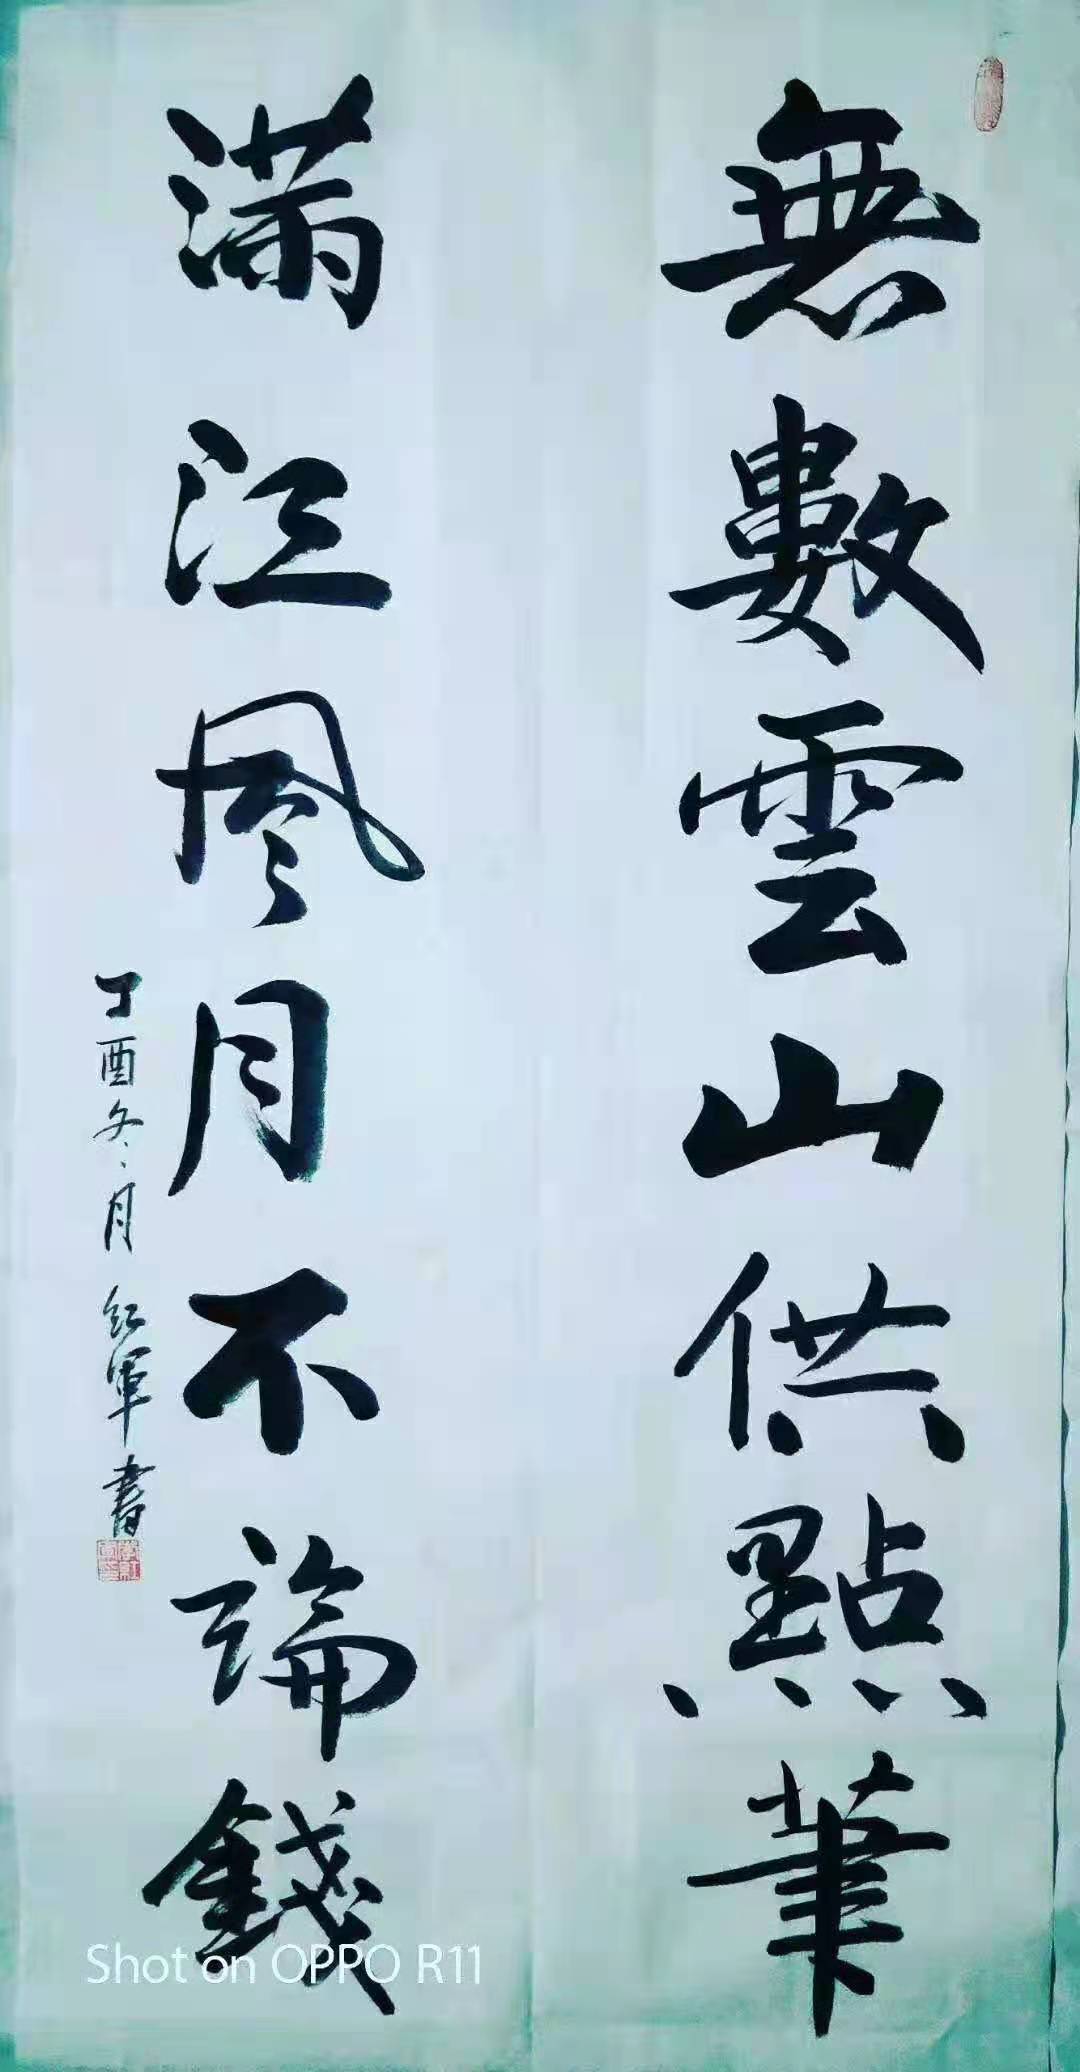 無數雲山供點筆
滿江風月不論錢
丁酉冬月紅軍書
Shot on OPPO R11